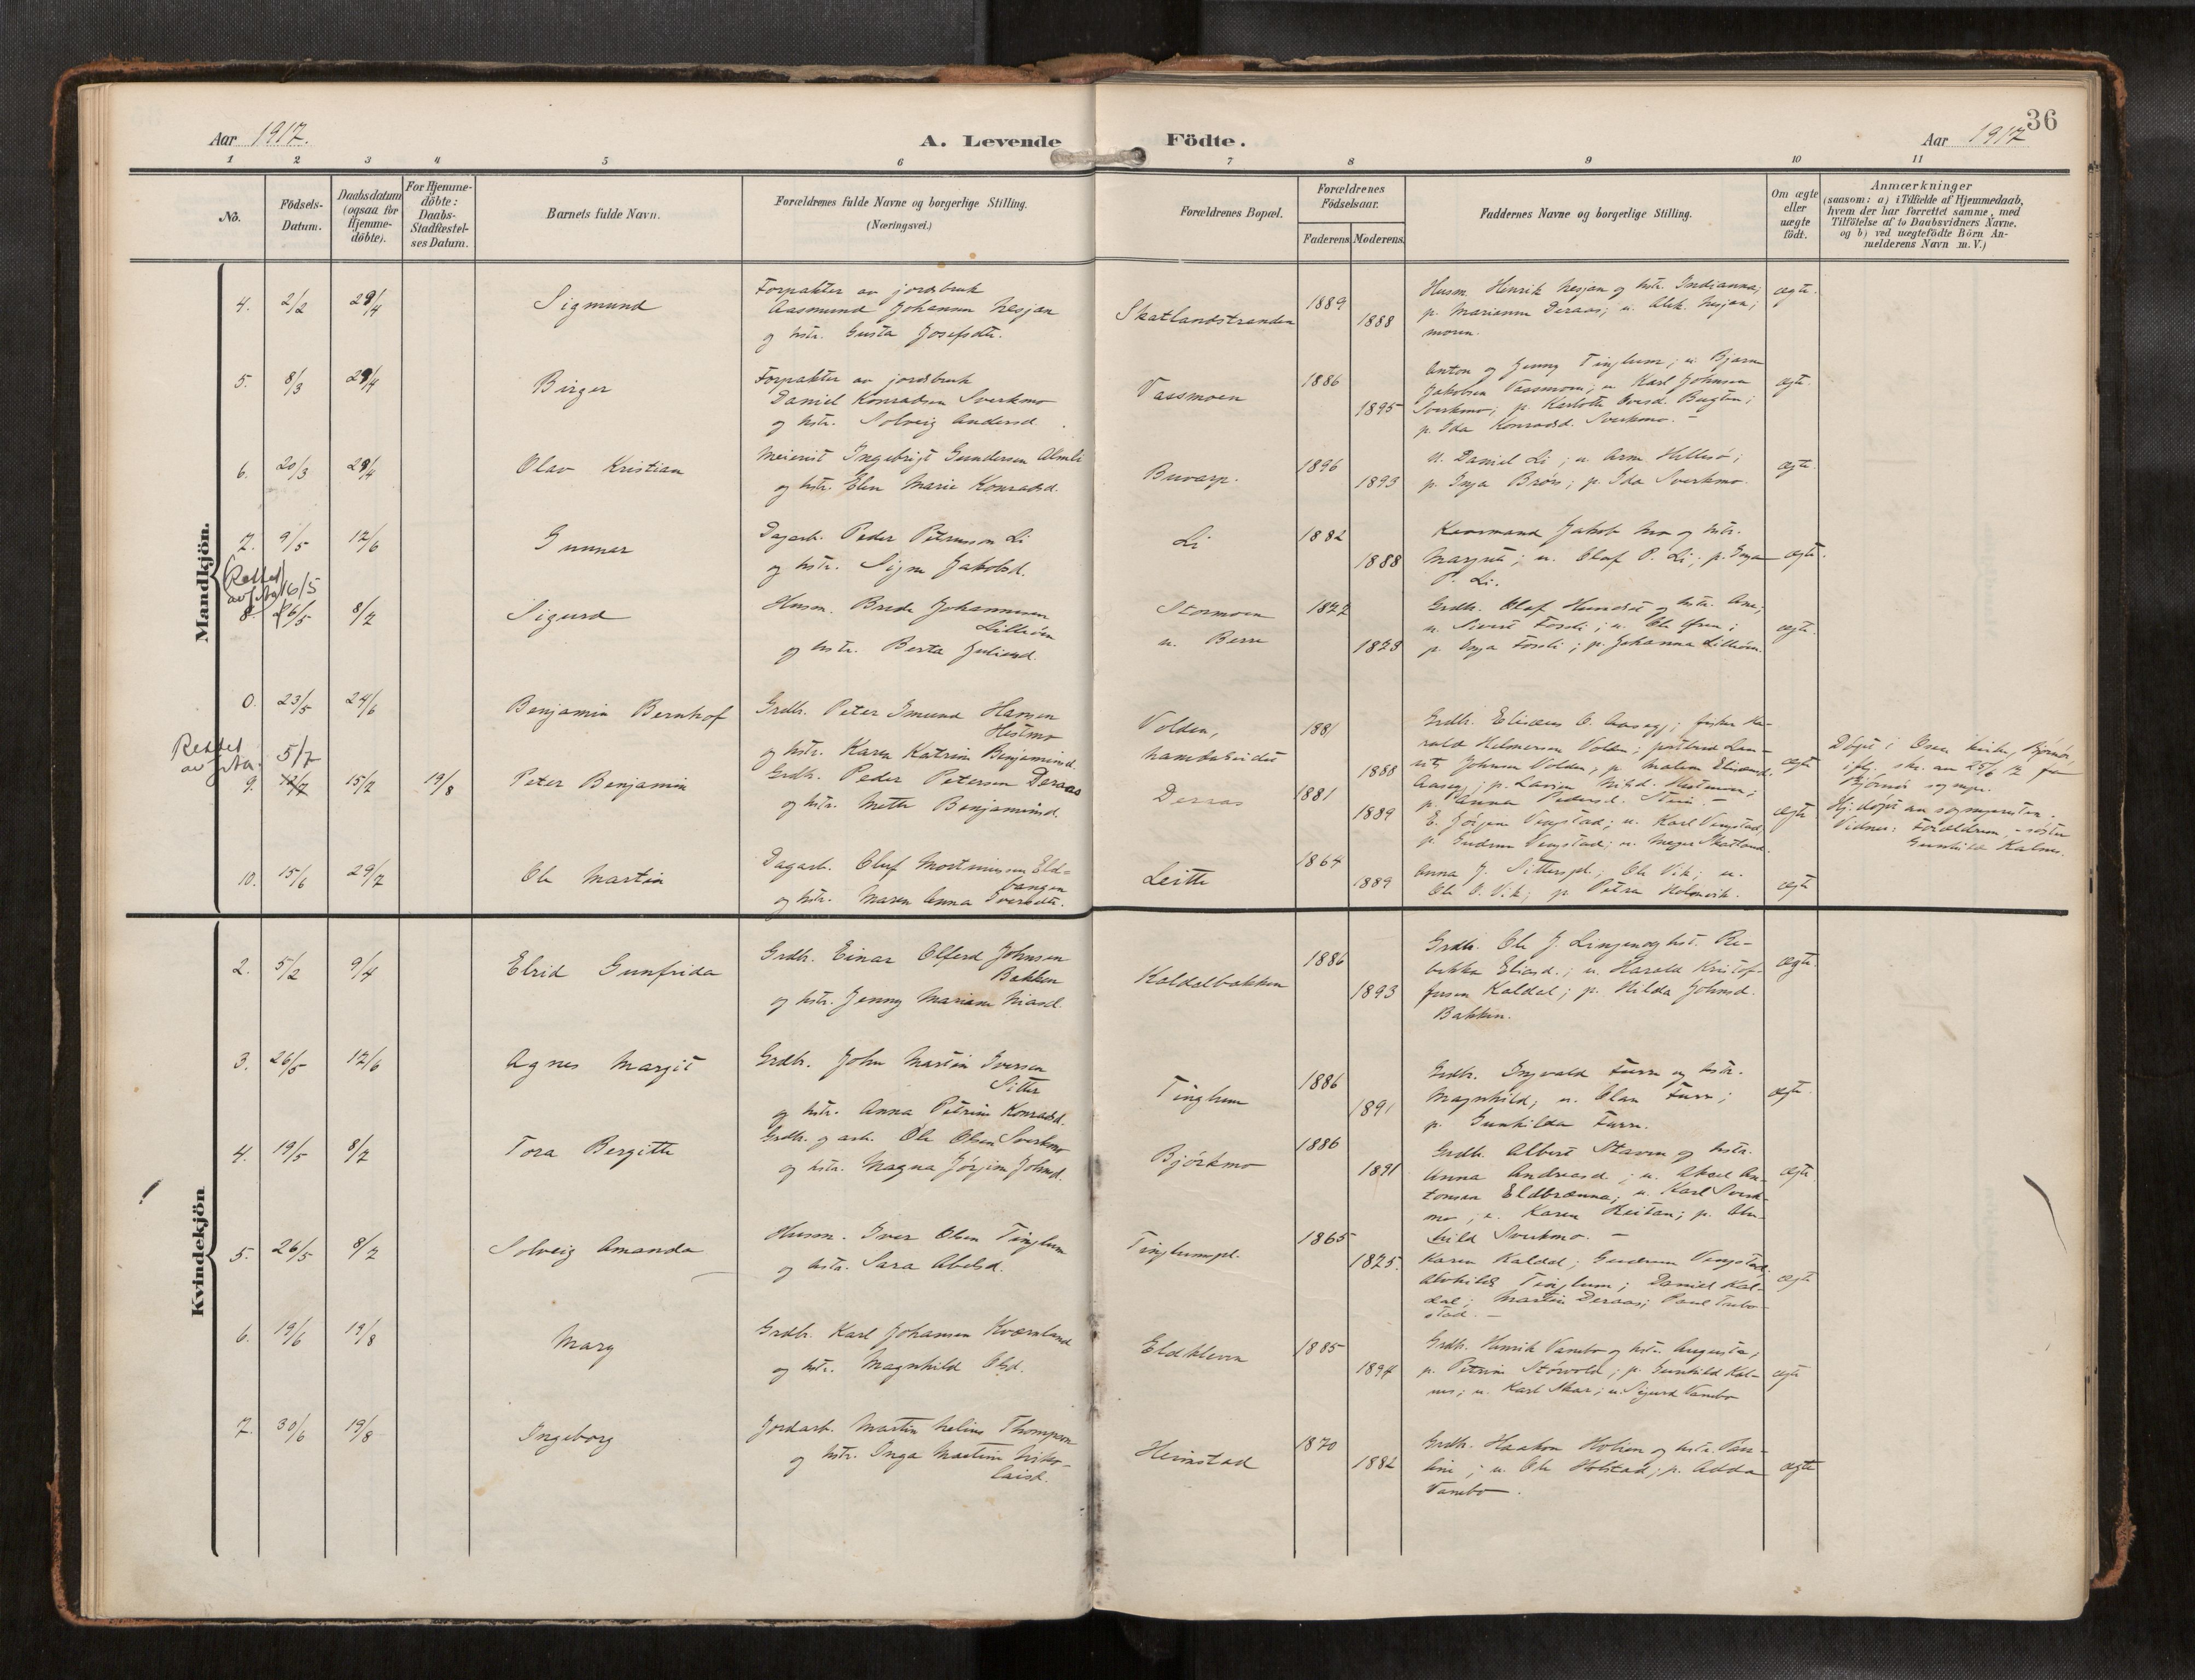 36
Aar 1917.
A. Levende Födte.
Aar 1917
1 2 3 4 5 6 7 8 9 10 11
No.
Födsels-
Datum.
Daabsdatum
(ogsaa for
Hjemme-
döbte).
For Hjemme-
döbte:
Daabs-
Stadfæstel-
ses Datum.
Barnets fulde Navn.
Forældrenes fulde Navne og borgerlige Stilling.
(Næringsvei.)
Forældrenes Bopæl.
Forældrenes
Födselsaar.
Faderens Moderens
Faddernes Navne og borgerlige Stilling.
Om ægte
eller
uægte
födt.
Anmærkninger
(saasom: a) i Tilfælde af Hjemmedaab,
hvem der har forrettet samme, med
Tilföielse af to Daabsvidners Navne.
og b) ved uægtefödte Börn An-
melderens Navn m. V.)
Mandkjön.
4. 2/2 29/4 Sigmund
Forpakter av jordbruk
Aasmund Johansen Nesjan
og hstr. Gusta Josefsdtr.
Skatlandstranden 1889 1888
Husm. Henrik Nesjan og hstr. Indianna;
p. Marianna Deraas; u. Alek. Nesjan;
moren.
ægte.
5. 8/3 29/4 Birger
Forpakter av jordbruk
Daniel Konradsen Sverkmo
og hstr. Solveig Andersd.
Vassmoen 1886 1895
Anton og Jenny Tinglum; u. Bjarne
Jakobsen Vassmoen; u. Karl Johnsen
Sverkmo; p. Karlotte Bugten;
p. Ida Konradsd. Sverkmo. –
ægte.
6. 20/3 29/4 Olav Kristian
Meierist Ingebrigt Gundersen Almli
og hstr. Elen Marie Konradsd.
Buvarp. 1896 1893
U. Daniel Li; u. Arne Hillesö;
p. Inga Brörs; p. Ida Sverkmo.
ægte.
7. 9/5 17/6 Gunnar
Dagarb. Peder Petersson Li
og hstr. Signe Jakobsd.
Li 1882 1888
Kaarmand Jakob Mo og hstr.
Margrete; u. Olaf P. Li; p. Inga
P. Li.
ægte.
(Rettet
av 16/5
8. 26/5 8/7 Sigurd
Husm. Brede Johannesen
Lilleöen
og hstr. Berta Juliesd.
Stormoen
u. Berre
1877 1873
Grdb. Olaf Hunset og hstr. Ane;
u. Sivert Fossli; u. Ole
p. Inga Fossli; p. Johanna Lilleöen.
ægte.
0. 23/5 24/6 Benjamin Bernhof
Grdb. Peter Imund Hansen
Hestmo
og hstr. Karen Katrine Benjamind.
Volden,
Namdseidet
1881 1888
Grdb. Eliseus O. Aasegg; fisker Ha-
rald Helmersen Volden; postbud Lau-
rits Johnsen Volden; p. Malene Eliseusd.
Aasegg; p. Lavine Hestmoen;
p. Anna Pedersd. Stein. –
ægte
Döpt i Osen kirke, Björnör,
ifly. skr. av 25/6 17 fra
Björnör sognepr.
Rettet
av
5/7
9. 12/7 15/7 19/8 Peter Benjamin
Grdb. Peder Petersen Deraas
og hstr. Mette Benjamind.
Derraas 1881 1889
E. Jörgen Vengstad; u. Karl Vengstad;
p. Gudrun Vengstad; u. Meyer Skatland.
ægte
Hj. döpt av sognepresten.
Vidner: Forældrene, söster
Gunhild Kalnes.
10. 15/6 29/7 Ole Martin
Dagarb. Oluf Mortinussen Eld-
bangen
og hstr. Maren Anna Iversdtr.
Leitte 1864 1889
Anna J. Sitterspl.; Ole Vik; u.
Ole O. Vik; p. Petra Holmvik.
ægte
Kvindekjön
2. 5/2 9/4 Elrid Gunfrida
Grdb. Einar Olferd Johnsen
Bakken
og hstr. Jenny Mariane Niasd.
Kaldalbakken 1886 1893
Grdb. Ole J. Lingen og hst. Re-
bekka Eliasd.; u. Harald Kristof-
fersen Kaldal; p. Hilda Johnsd.
Bakken.
ægte
3. 26/5 17/6 Agnes Margit
Grdb. John Martin Iversen
Sitter
og hstr. Anna Petrine Konradsd.
Tinglum 1886 1891
Grdb. Ingvald Furre og hstr.
Magnhild; u. Olav Furre;
p. Gunhilda Furre.
ægte.
4. 19/5 8/7 Tora Bergitte
Grdb. og arb. Ole Olsen Sverkmo
og hstr. Magna Jörgine Johnsd.
Björkmo 1886 1891
Grdb. Albert Stavrn og hstr.
Anna Andreasd.; u. Aksel An-
tonsen Eldbrænna; u. Karl Sverk-
mo; u. Karen Heitan; p. Olu-
hild Sverkmo. –
ægte
5. 26/5 8/7 Solveig Amanda
Husm. Iver Olsen Tinglum
og hstr. Sara Abelsd.
Tinglumspl. 1865 1875.
Karen Kaldal; Gudrun Vengstad;
Alvhilde Tinglum; Daniel Kal-
dal; Martin Deraas; Paul Tusbo-
stad. –
ægte
6. 19/6 19/8 Mary
Grdb. Karl Johansen Kværnland
og hstr. Magnhild Olsd.
Eldkleven 1885 1894
Grdb. Henrik Vambo og hstr. Augusta;
p. Petrine Stöwold; p. Gunhild Kal-
nes; u. Karl Skar; u. Sigurd Vambo
ægte
7. 30/6 19/8 Ingeborg
Jordarb. Martin Nelius Thompson
og hstr. Inga Martine Niko-
laisd.
Heimstad 1870 1882
Grdb. Haakon Holien og hstr. Pau-
line; u. Ole Holstad; p. Adda
Vambo.
ægte